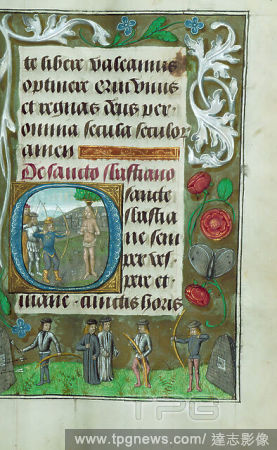 te libere valeamus
optinere Et vivas
et regnas deus per
omnia secula seculor
amen
De sancto sebastiano
O sancte
sebastia
ne sem
per ves
pere et
mane cunctis horis
TPG
www.tpgnews.com / 達志影像